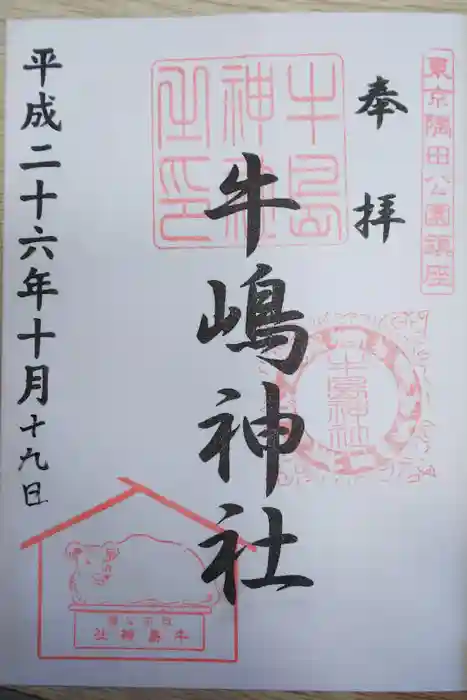 東京隅田公園鎮座
奉拝
牛嶋神社
牛島神社之印
牛島神社
平成二十六年十月十九日
牛島神社